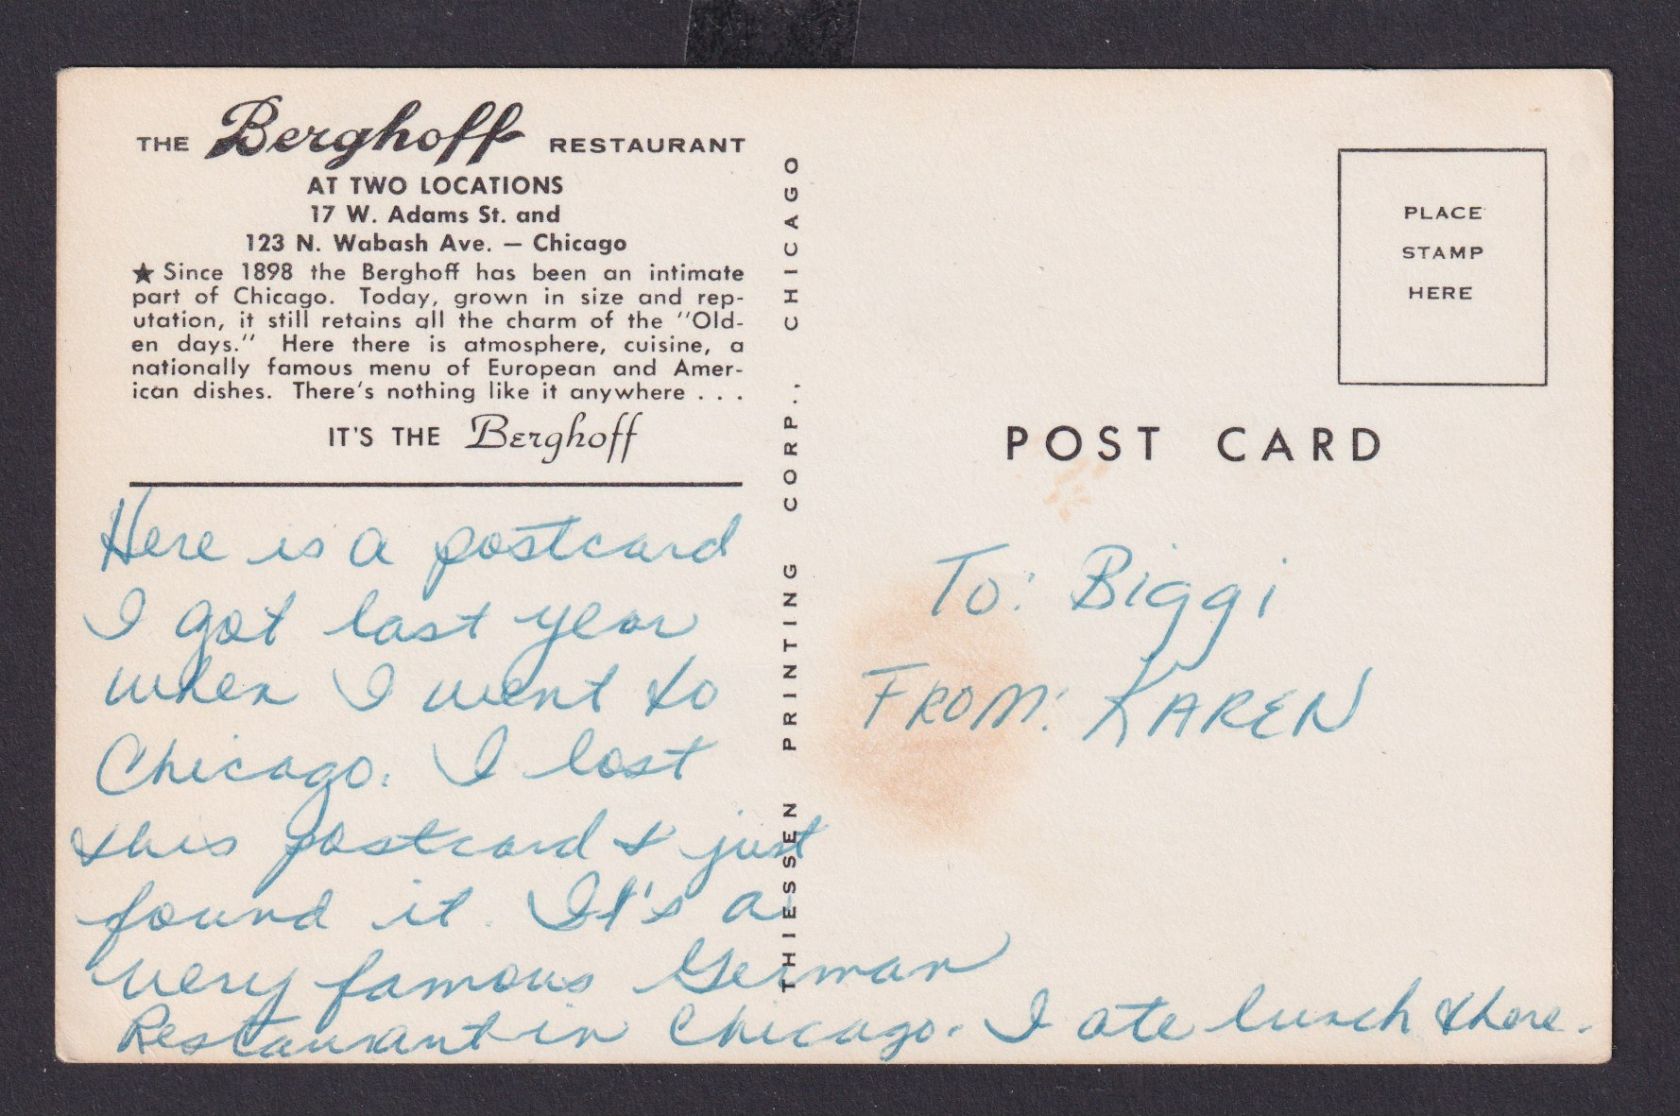 THE Berghoff RESTAURANT
AT TWO LOCATIONS
17 W. Adams St. and
123 N. Wabash Ave. — Chicago
★ Since 1898 the Berghoff has been an intimate
part of Chicago. Today, grown in size and rep-
utation, it still retains all the charm of the "Old-
en days." Here there is atmosphere, cuisine, a
nationally famous menu of European and Amer-
ican dishes. There's nothing like it anywhere . . .
IT'S THE Berghoff
Here is a postcard
I got last year
when I went to
Chicago. I lost
this postcard & just
found it. It's a
very famous German
Restaurant in Chicago. I ate lunch there.
THIESSEN PRINTING CORP., CHICAGO
PLACE
STAMP
HERE
POST CARD
To: Biggi
FROM: KAREN